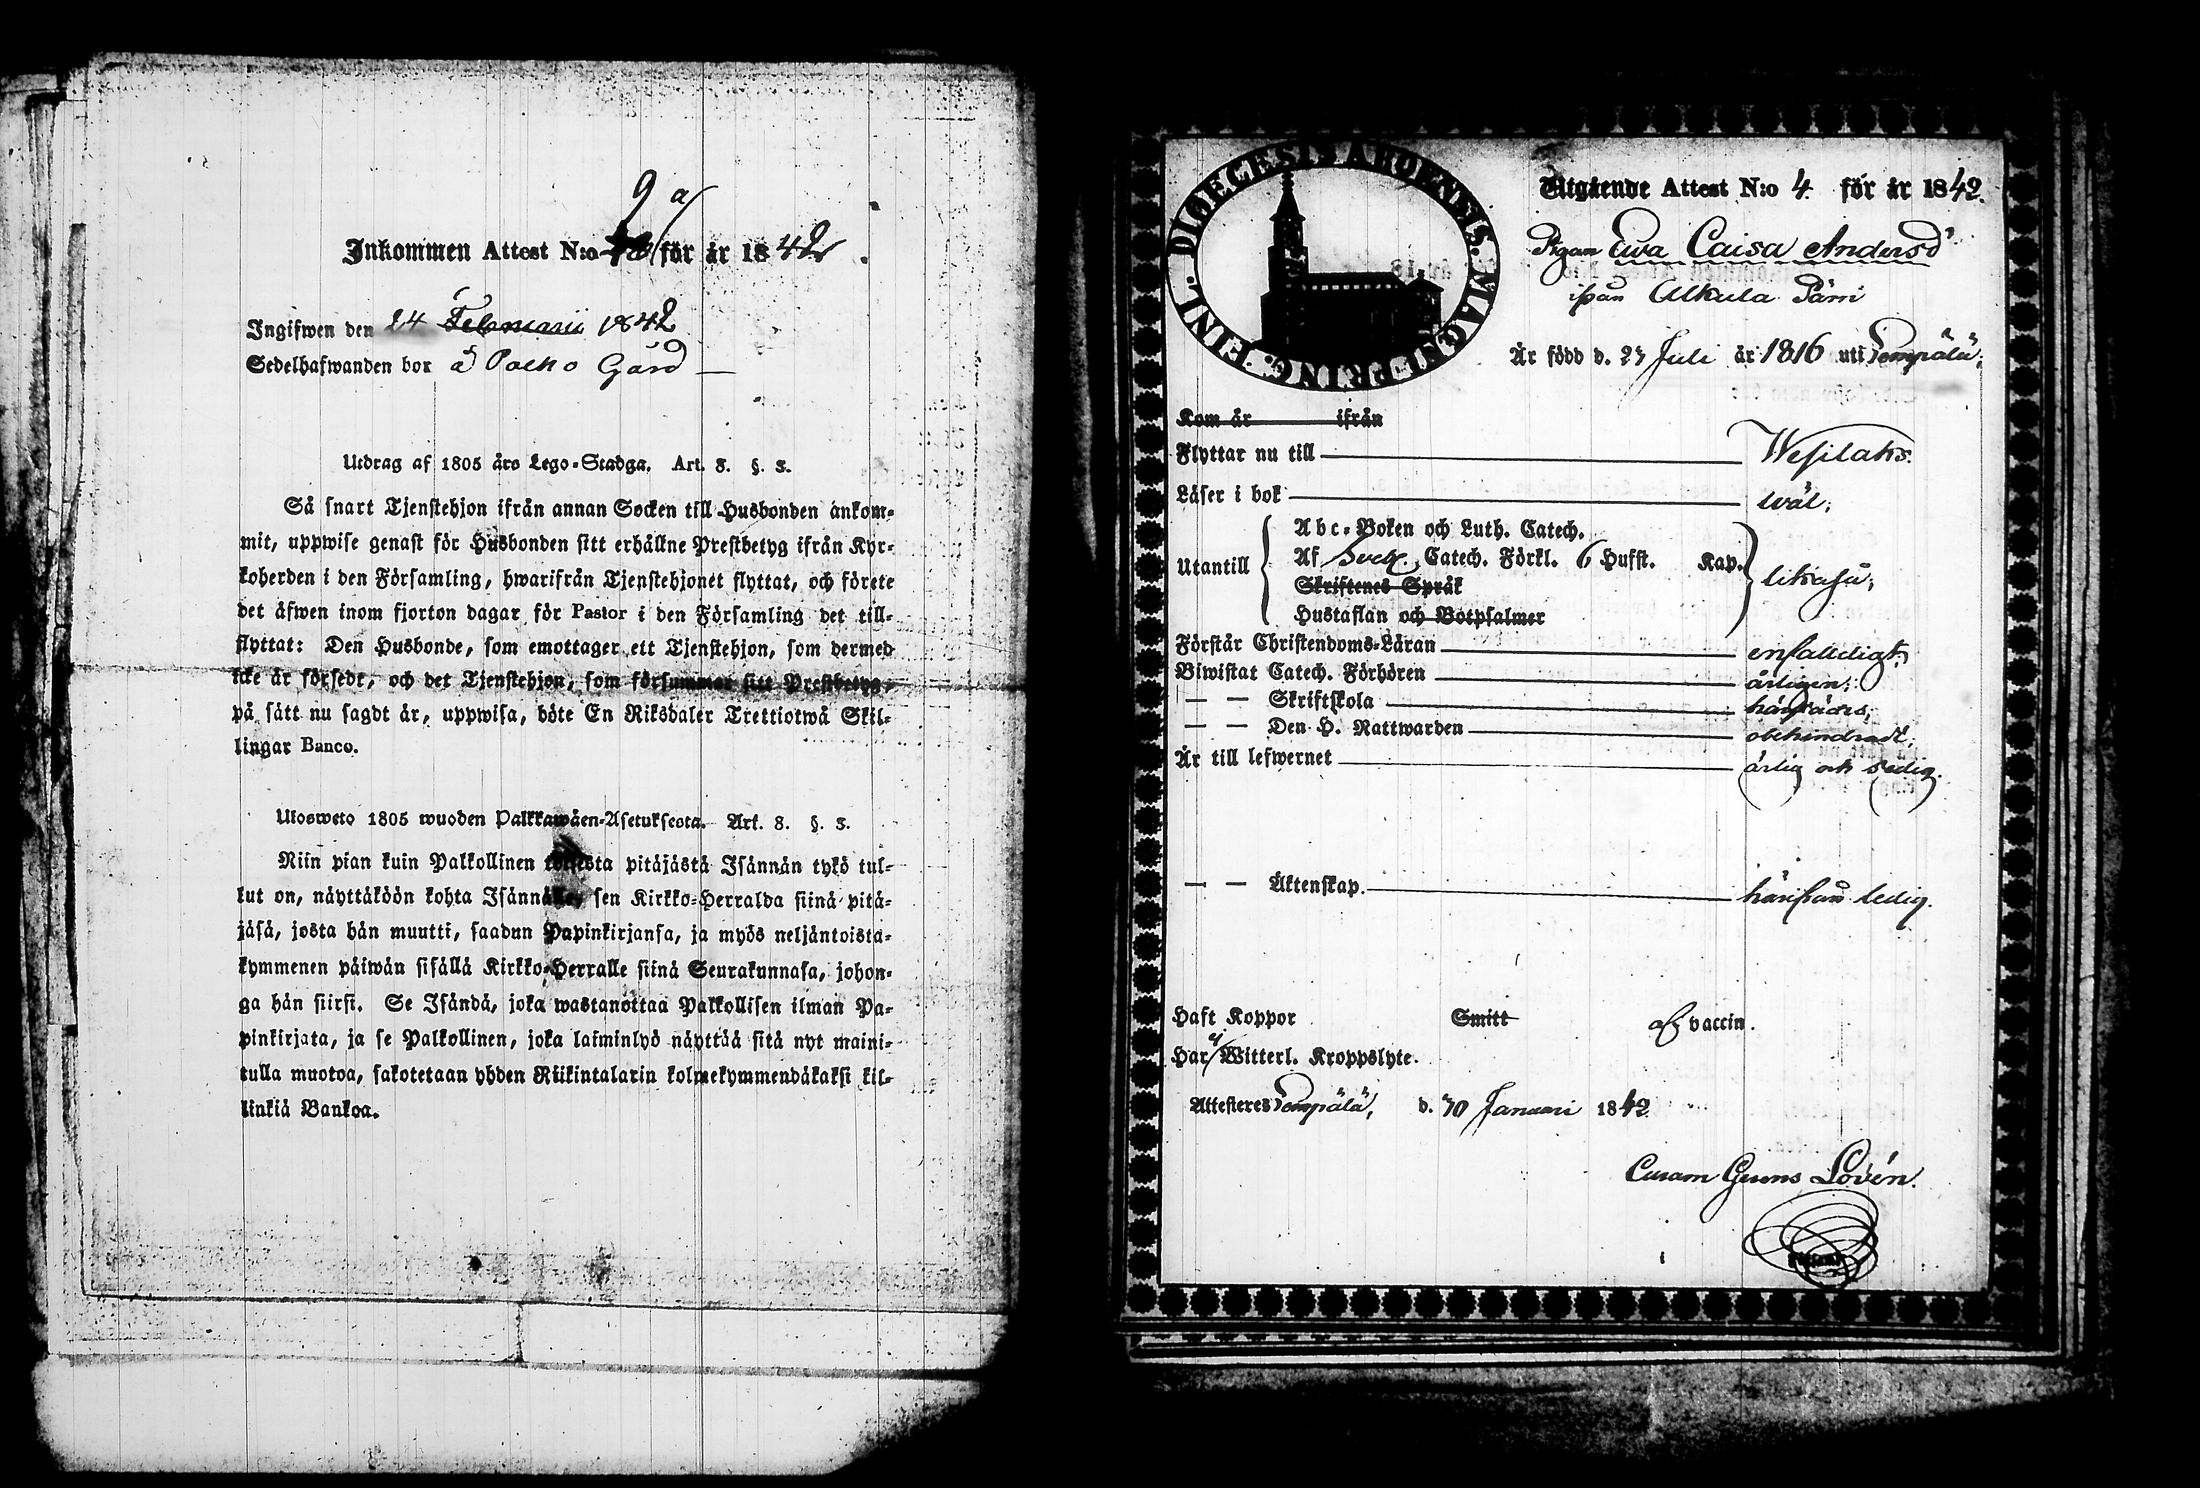 9 a/
Inkommen Attest N:o för år 1842.
Ingifwen den 24 Februarii 1842
Sedelhafwanden bor å Palho Gård
Utdrag af 1805 års Lego-Stadga. Art. 8. §. 3.
Så snart Tjenstehjon ifrån annan Socken till Husbonden ankom-
mit, uppwise genast för Husbonden sitt erhållne Prestbetyg ifrån Kyr-
koherden i den Församling, hwarifrån Tjenstehjonet flyttat, och förete
det äfwen inom fjorton dagar för Pastor i den Församling det till-
flyttat: Den Husbonde, som emottager ett Tjenstehjon, som dermed
icke är försedt, och det Tjenstehjon, som försummar sitt Prestbetyg,
på sätt nu sagdt är, uppwisa, böte En Riksdaler Trettiotwå Skil-
lingar Banco.
Ulosweto 1805 wuoden Palkkawäen-Asetuksesta. Art. 8. §. 3.
Niin pian kuin Palkollinen toisesta pitäjästä Isännän tykö tul-
lut on, näyttäköön kohta Isännälle, sen Kirkko-Herralda siinä pitä-
jäsä, josta hän muutti, saadun Papinkirjansa, ja myös neljäntoista-
kymmenen päiwän sisällä Kirkko-Herralle siinä Seurakunnasa, johon-
ga hän siirsi. Se Isändä, joka wastanottaa Palkollisen ilman Pa-
pinkirjata, ja se Palkollinen, joka laiminlyö näyttää sitä nyt maini-
tulla muotoa, sakotetaan yhden Riikintalarin kolmekymmendäkaksi kil-
linkiä Bankoa.
DIOECESIS ABOENSIS. MAGNI PRING. FINL.
Utgående Attest N:o 4. för år 1842.
Pigan Ewa Caisa Andersd:r
ifrån Alkula Pärri
Är född d. 27 Juli år 1816 uti Lempälä;
Kom år ifrån
Flyttar nu till Wesilaks.
Läser i bok wäl;
Utantill
Abc-Boken och Luth. Catech.
Af Sveb. Catech. Förkl. 6 Hufst. Kap.
Skriftenes Språk
Hustaflan och Botpsalmer
likaså;
Förstår Christendoms-Läran enfalldigt;
Biwistat Catech. Förhören årligen;
— — Skriftskola härstädes;
— — Den H. Nattwarden obehindradt;
Är till lefwernet ärlig och sedig.
— — Äktenskap. härifrån ledig.
Haft Koppor Smitt af vaccin.
Har ej Witterl. Kroppslyte.
Attesteres Lempälä, d. 30 Januari 1842
Curam Gerens Lovén.